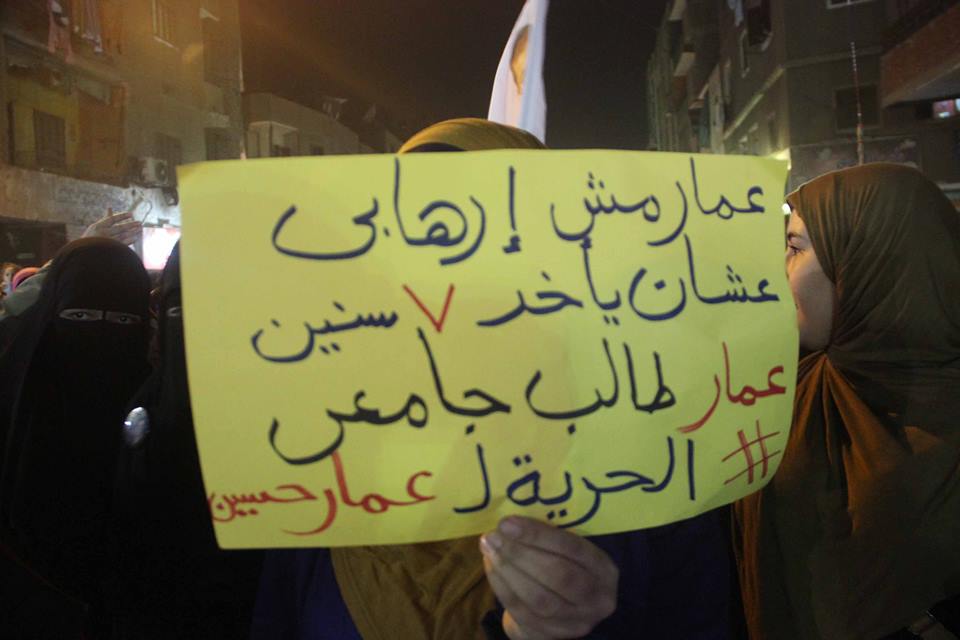 عمار مش إرهابى
عشان يأخد ٧ سنين
عمار طالب جامعى
# الحرية ل عمار حسين